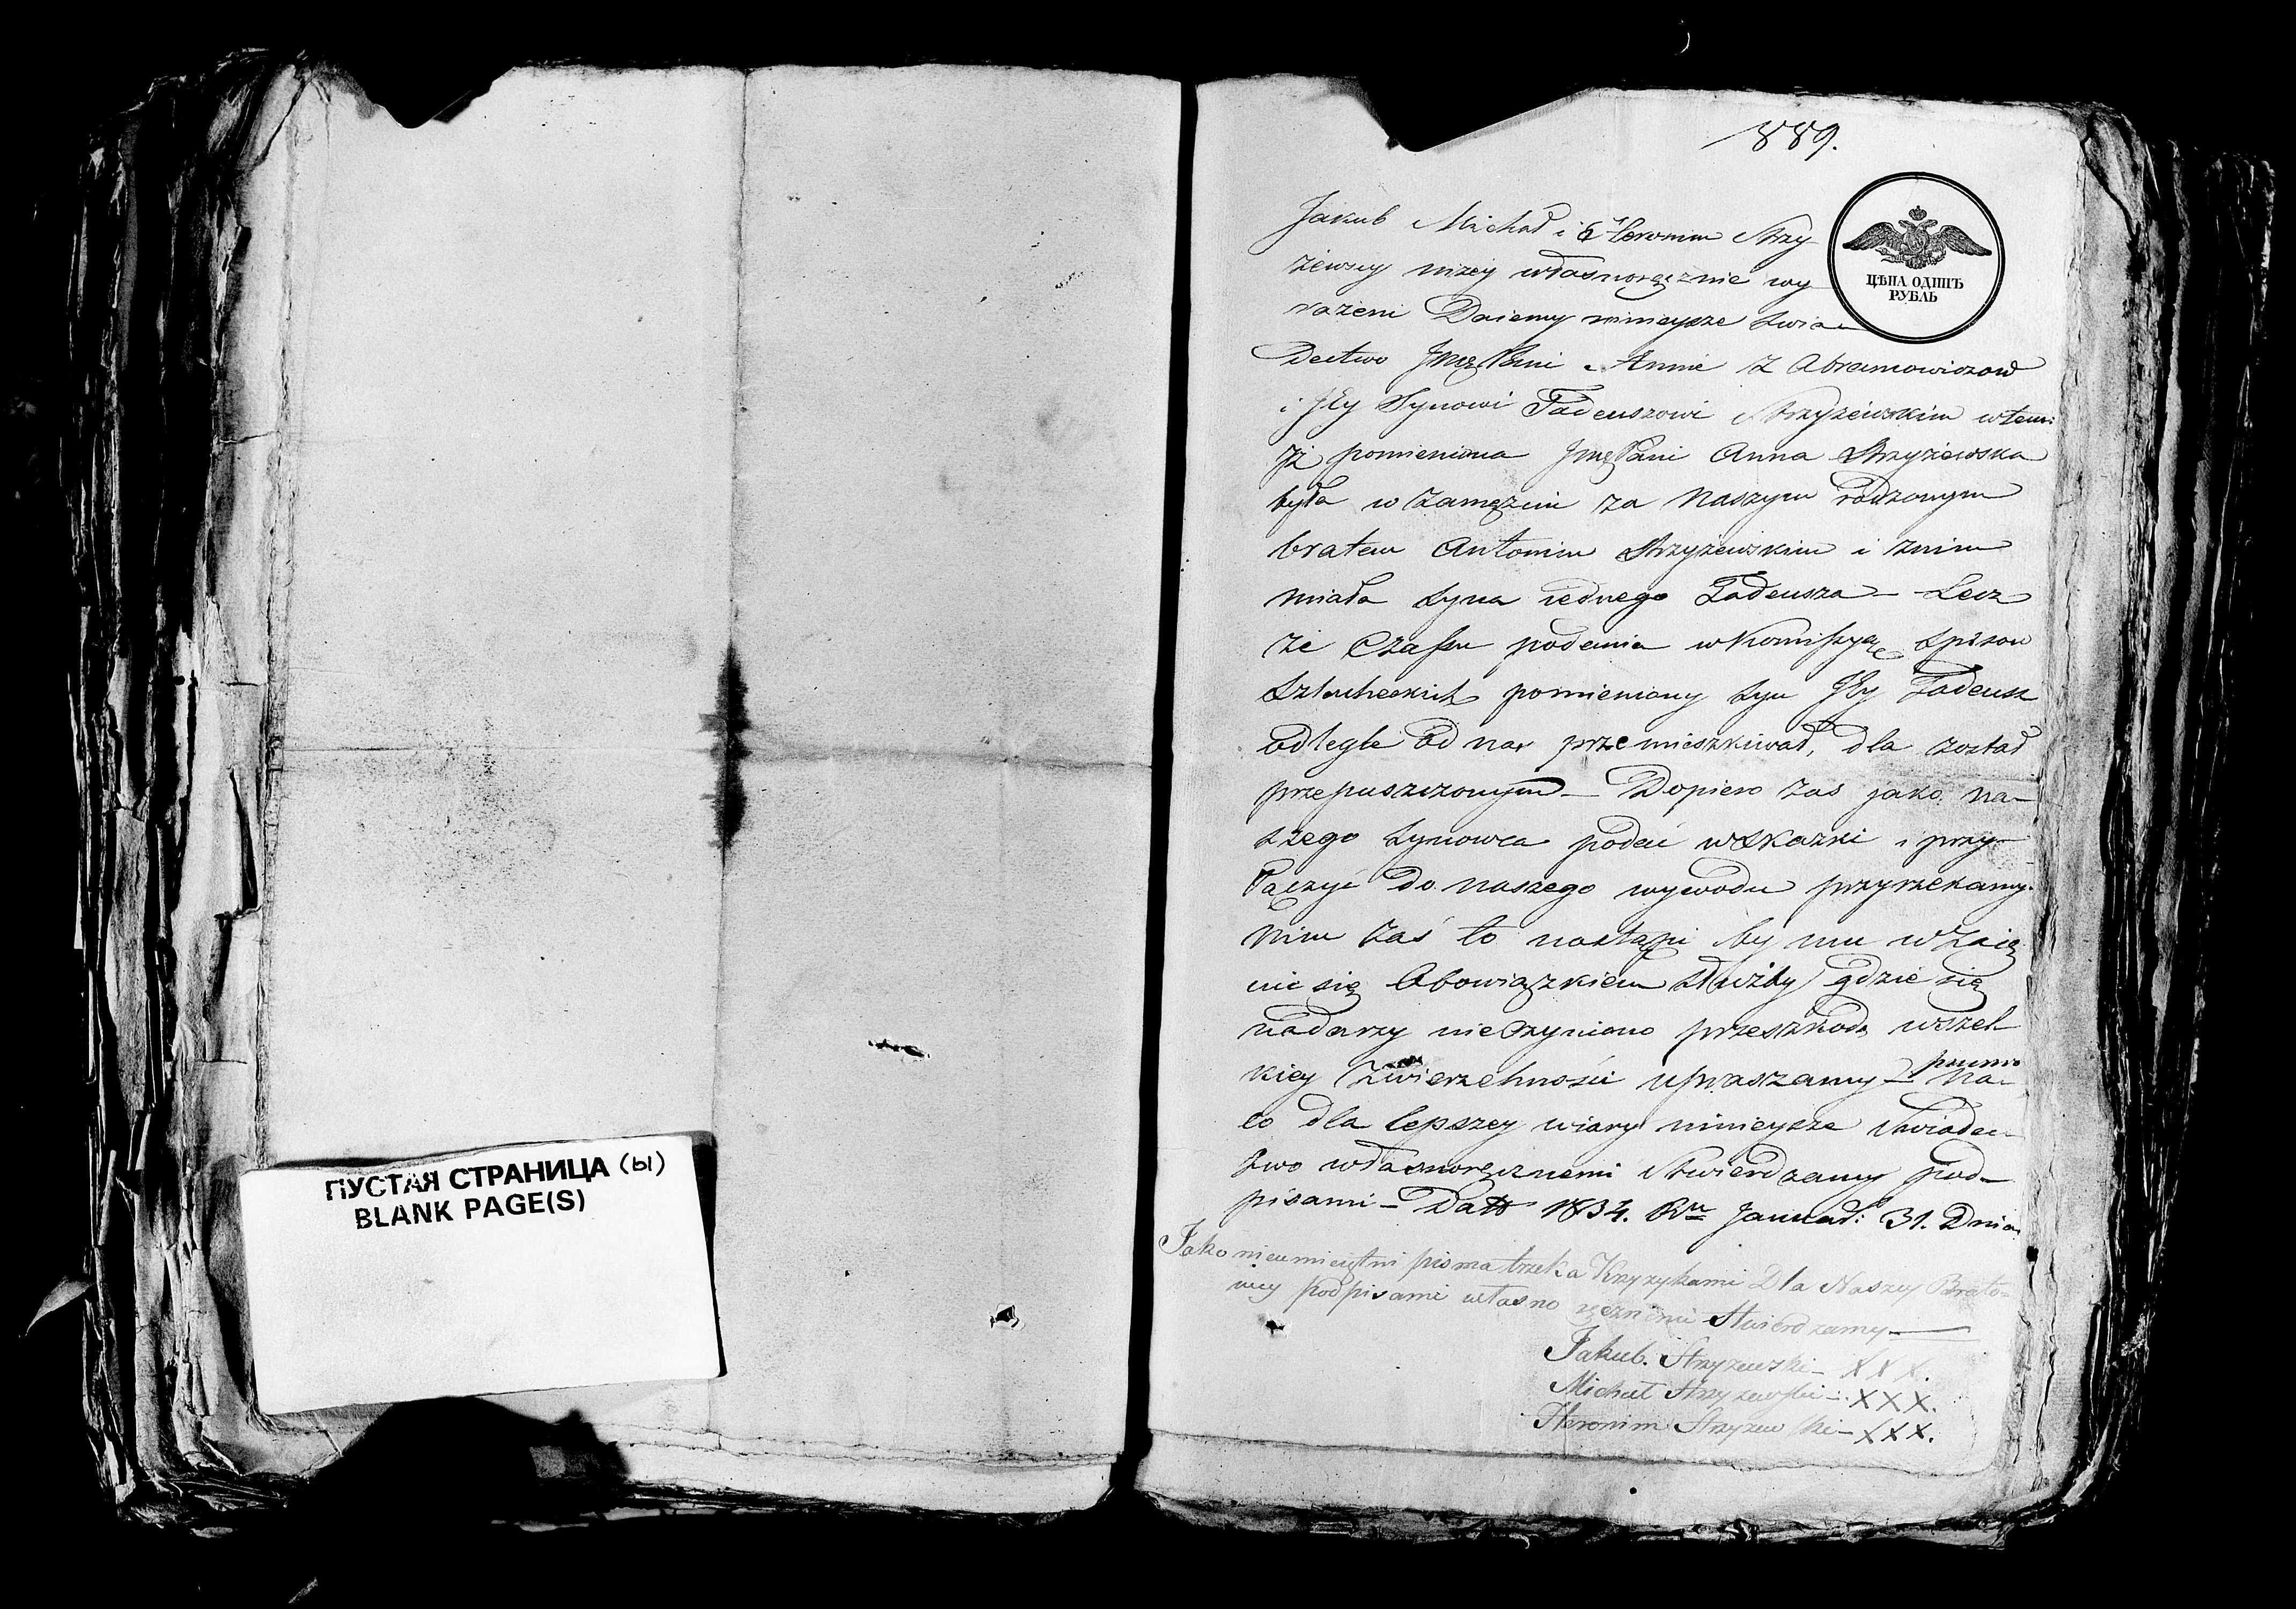 ПУСТАЯ СТРАНИЦА (ы)
BLANK PAGE(S)
889.
ЦѢНА ОДИНЪ
РУБЛЬ
Jakub Michał i Heronim Strzy
żewscy niżey własnoręcznie wy
rażeni Daiemy ninieysze Swia
dectwo Jmę Pani Annie z Abramowiczow
i Jey Synowi Tadeuszowi Strzyżewskim w tem:
Jż pomieniona Jmę Pani Anna Strzyżewska
była w zamęzciu za Naszym rodzonym
bratem Antonim Strzyżewskim i znim
miała Syna iednego Tadeusza – Lecz
że Czassu podania w Kommissyę Spisow
Szlacheckich pomieniony Syn Jey Tadeusz
odlegle od nas przemieszkiwał, dla został
przepuszczonym – Dopiero zas jako na
szego Synowca podać w Skazki i przy
łączyć do naszego wywodu przyrzekamy.
Nim zaś to nastąpi by mu w Zaię
ciu się Obowiązkiem służby gdzie się
nadarzy nieczyniono przeszkod wszel
kiey Zwierzchności upraszamy – Na
co dla lepszey wiary ninieysze Swiadec
two własnoręcznemi Stwierdzamy pod
pisami – Datt 1834. Ru Januar: 31. Dnia
Jako nieumieiętni pisma trzeka Krzyżykami Dla Naszey Brato=
wey podpisami własno ręcznemi Stwierdzamy
Jakub. Strzyżewski – XXX.
Michał Strzyżewski – XXX.
Heronim Strzyżewski – XXX.